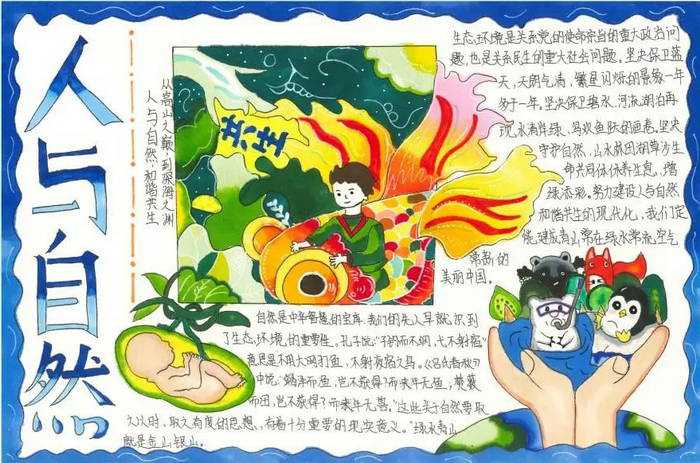 人与自然
从高山之巅到深海之渊
人与自然和谐共生
共生
生态环境是关系党的使命宗旨的重大政治问
题，也是关系民生的重大社会问题，坚决保卫蓝
天，天朗气清，繁星闪烁的景致一年
多于一年。坚决保卫碧水，河流湖泊再
现水清岸绿、鸟欢鱼跃的画卷。坚决
守护自然，山水林田湖草沙生
命共同体休养生息，增
绿添彩。努力建设人与自然
和谐共生的现代化，我们定
能建成青山常在绿水常流空气
常新的
美丽中国。
自然是中华智慧的宝库，我们的先人早就认识到
了生态环境的重要性，孔子说:“子钓而不网，弋不射宿”
意思是不用大网打鱼，不射夜宿之鸟。《吕氏春秋》
中说:“竭泽而渔，岂不获得?而来年无鱼，焚薮
而田，岂不获得?而来年无兽。”这些关于自然要取
之以时、取之有度的思想，有着十分重要的现实意义。“绿水青山
就是金山银山。